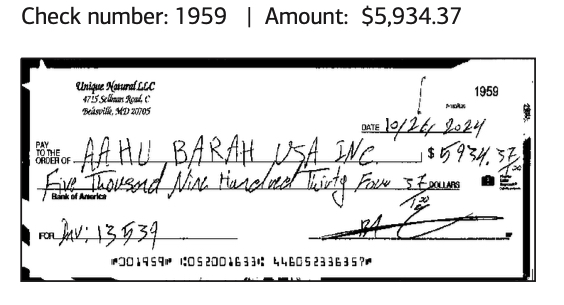 Check number: 1959 | Amount: $5,934.37
Unique Natural LLC
4715 Sellman Road, C
Beltsville, MD 20705
1959
DATE 10/26/2024
PAY TO THE ORDER OF AAHU BARAH USA INC $ 5934.37/100
Five Thousand Nine Hundred Thirty Four 37/100 DOLLARS
Bank of America
FOR Inv: 13539
⑈001959⑈ ⑆052001633⑆ 446052336357⑈